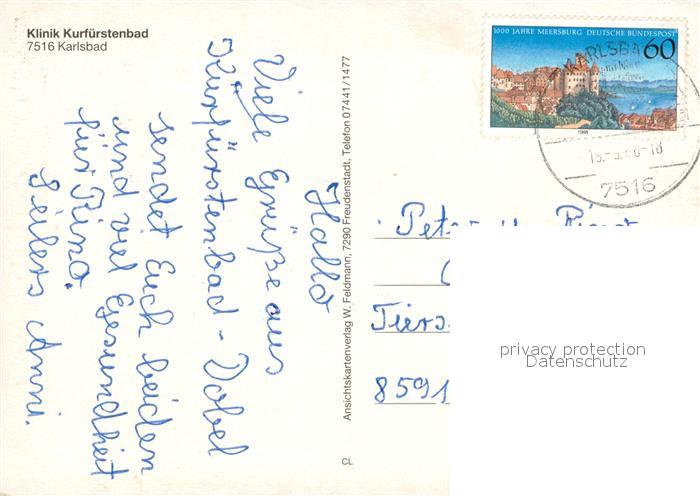 Klinik Kurfürstenbad
7516 Karlsbad
Hallo
Viele Grüße aus
Kurfürstenbad - Dobel
sendet Euch beiden
und viel Gesundheit
für Rina.
Seilers Anni.
Ansichtskartenverlag W. Feldmann, 7290 Freudenstadt, Telefon 07441/1477
CL
1000 JAHRE MEERSBURG DEUTSCHE BUNDESPOST
60
1988
KARLSBA
7516
Tiers
8591
privacy protection
Datenschutz